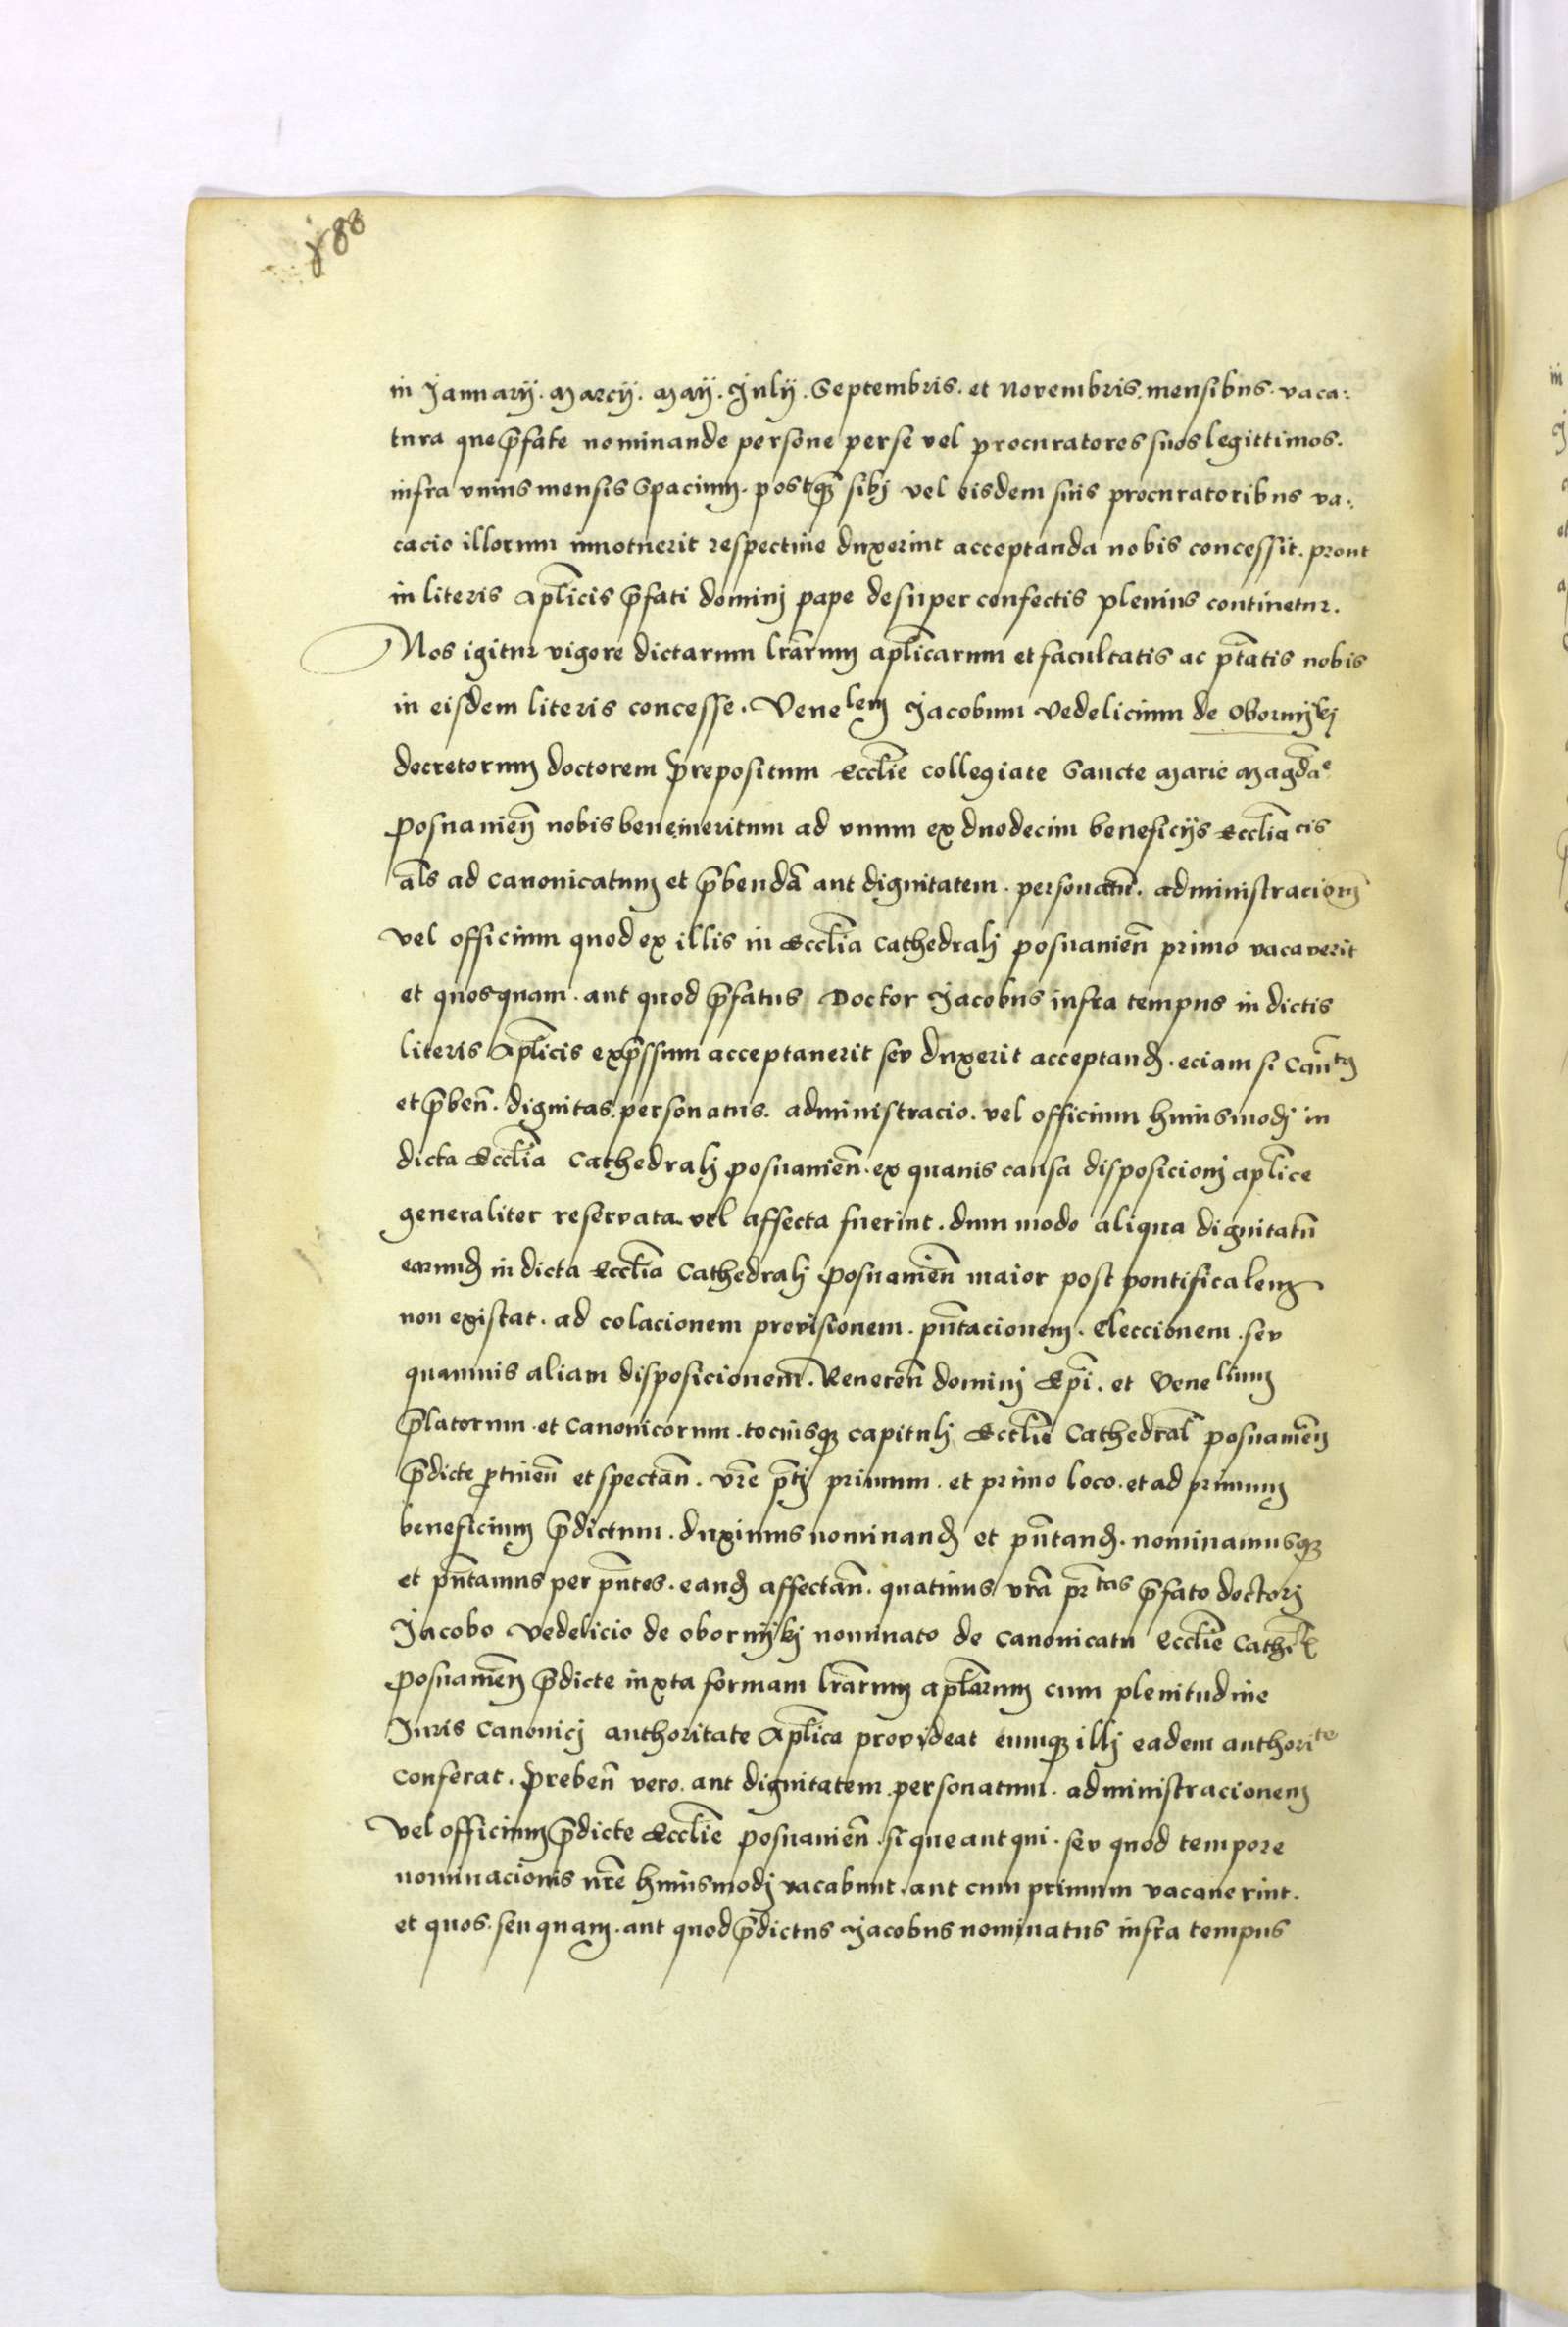 188
in Januarij. Marcij. Maij. Julij. Septembris. et Novembris. mensibus. vaca:
tura que p̄fate nominande persone per se vel procuratores suos legittimos.
infra vnius mensis spacium. postq̄ȝ sibj vel eisdem suis procuratoribus va:
cacio illorum innotuerit respectiue duxerint acceptanda nobis concessit. prout
in literis Aplīcis p̄fati dominj pape desuper confectis plenius continetur.
Nos igitur vigore dictarum lrārum aplīcarum et facultatis ac pt̄atis nobis
in eisdem literis concesse. Venelem Jacobum Vedelicium de Obornijkj
decretorum doctorem prepositum Ecclīe collegiate Sancte Marie Magdāe
posnanień nobis benemeritum ad vnum ex duodecim beneficijs Ecclīacis
al̄s ad canonicatum et p̄bendā aut dignitatem. personatū. administracionē
vel officium quod ex illis in Ecclīa Cathedralj posnanień primo vacaverit
et quos quam. aut quod p̄fatus Doctor Jacobus infra tempus in dictis
literis Aplīcis exp̄ssum acceptauerit seu duxerit acceptand. eciam si Cantū
et p̄beń. dignitas. personatus. administracio. vel officium huiusmodj in
dicta Ecclīa Cathedralj posnanień. ex quauis causa disposicionj aplīce
generaliter reservata. vel affecta fuerint. dummodo aliqua dignitatū
earund in dicta Ecclīa Cathedralj posnanień maior post pontificalem
non existat. ad colacionem provisionem. pn̄tacionem. eleccionem. seu
quamuis aliam disposicionem. Reuereń dominj Ep̄i. et Venelium
p̄latorum. et Canonicorum. tociusqȝ capitulj Ecclīe Cathedral̄ posnanień
p̄dicte p̄tineń et spectań. vr̄e p̄tj primum. et primo loco. et ad primum
beneficium p̄dictum. duximus nominand et pn̄tand. nominamusqȝ
et pn̄tamus per pn̄tes. eand affectań. quatinus vrā pr̄tas p̄fato doctorj
Jacobo Vedelicio de Obornijkj nominato de Canonicatu Ecclīe Cathel̄
posnanień p̄dicte iuxta formam lrārum aplārum cum plenitudine
Juris Canonicj authoritate Aplīca provideat eumqȝ illj eadem authorite
conferat. prebeń vero. aut dignitatem. personatum. administracionem
vel officium p̄dicte Ecclīe posnanień. si que aut qui. seu quod tempore
nominacionis nr̄e huiusmodj vacabunt. aut cum primum vacauerint.
et quos. seu quam. aut quod p̄dictus Jacobus nominatus infra tempus